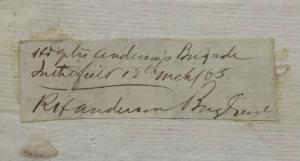 Hd Qtrs Anderson's Brigade
In the field 12th Mch /65
RH Anderson Brig Genl